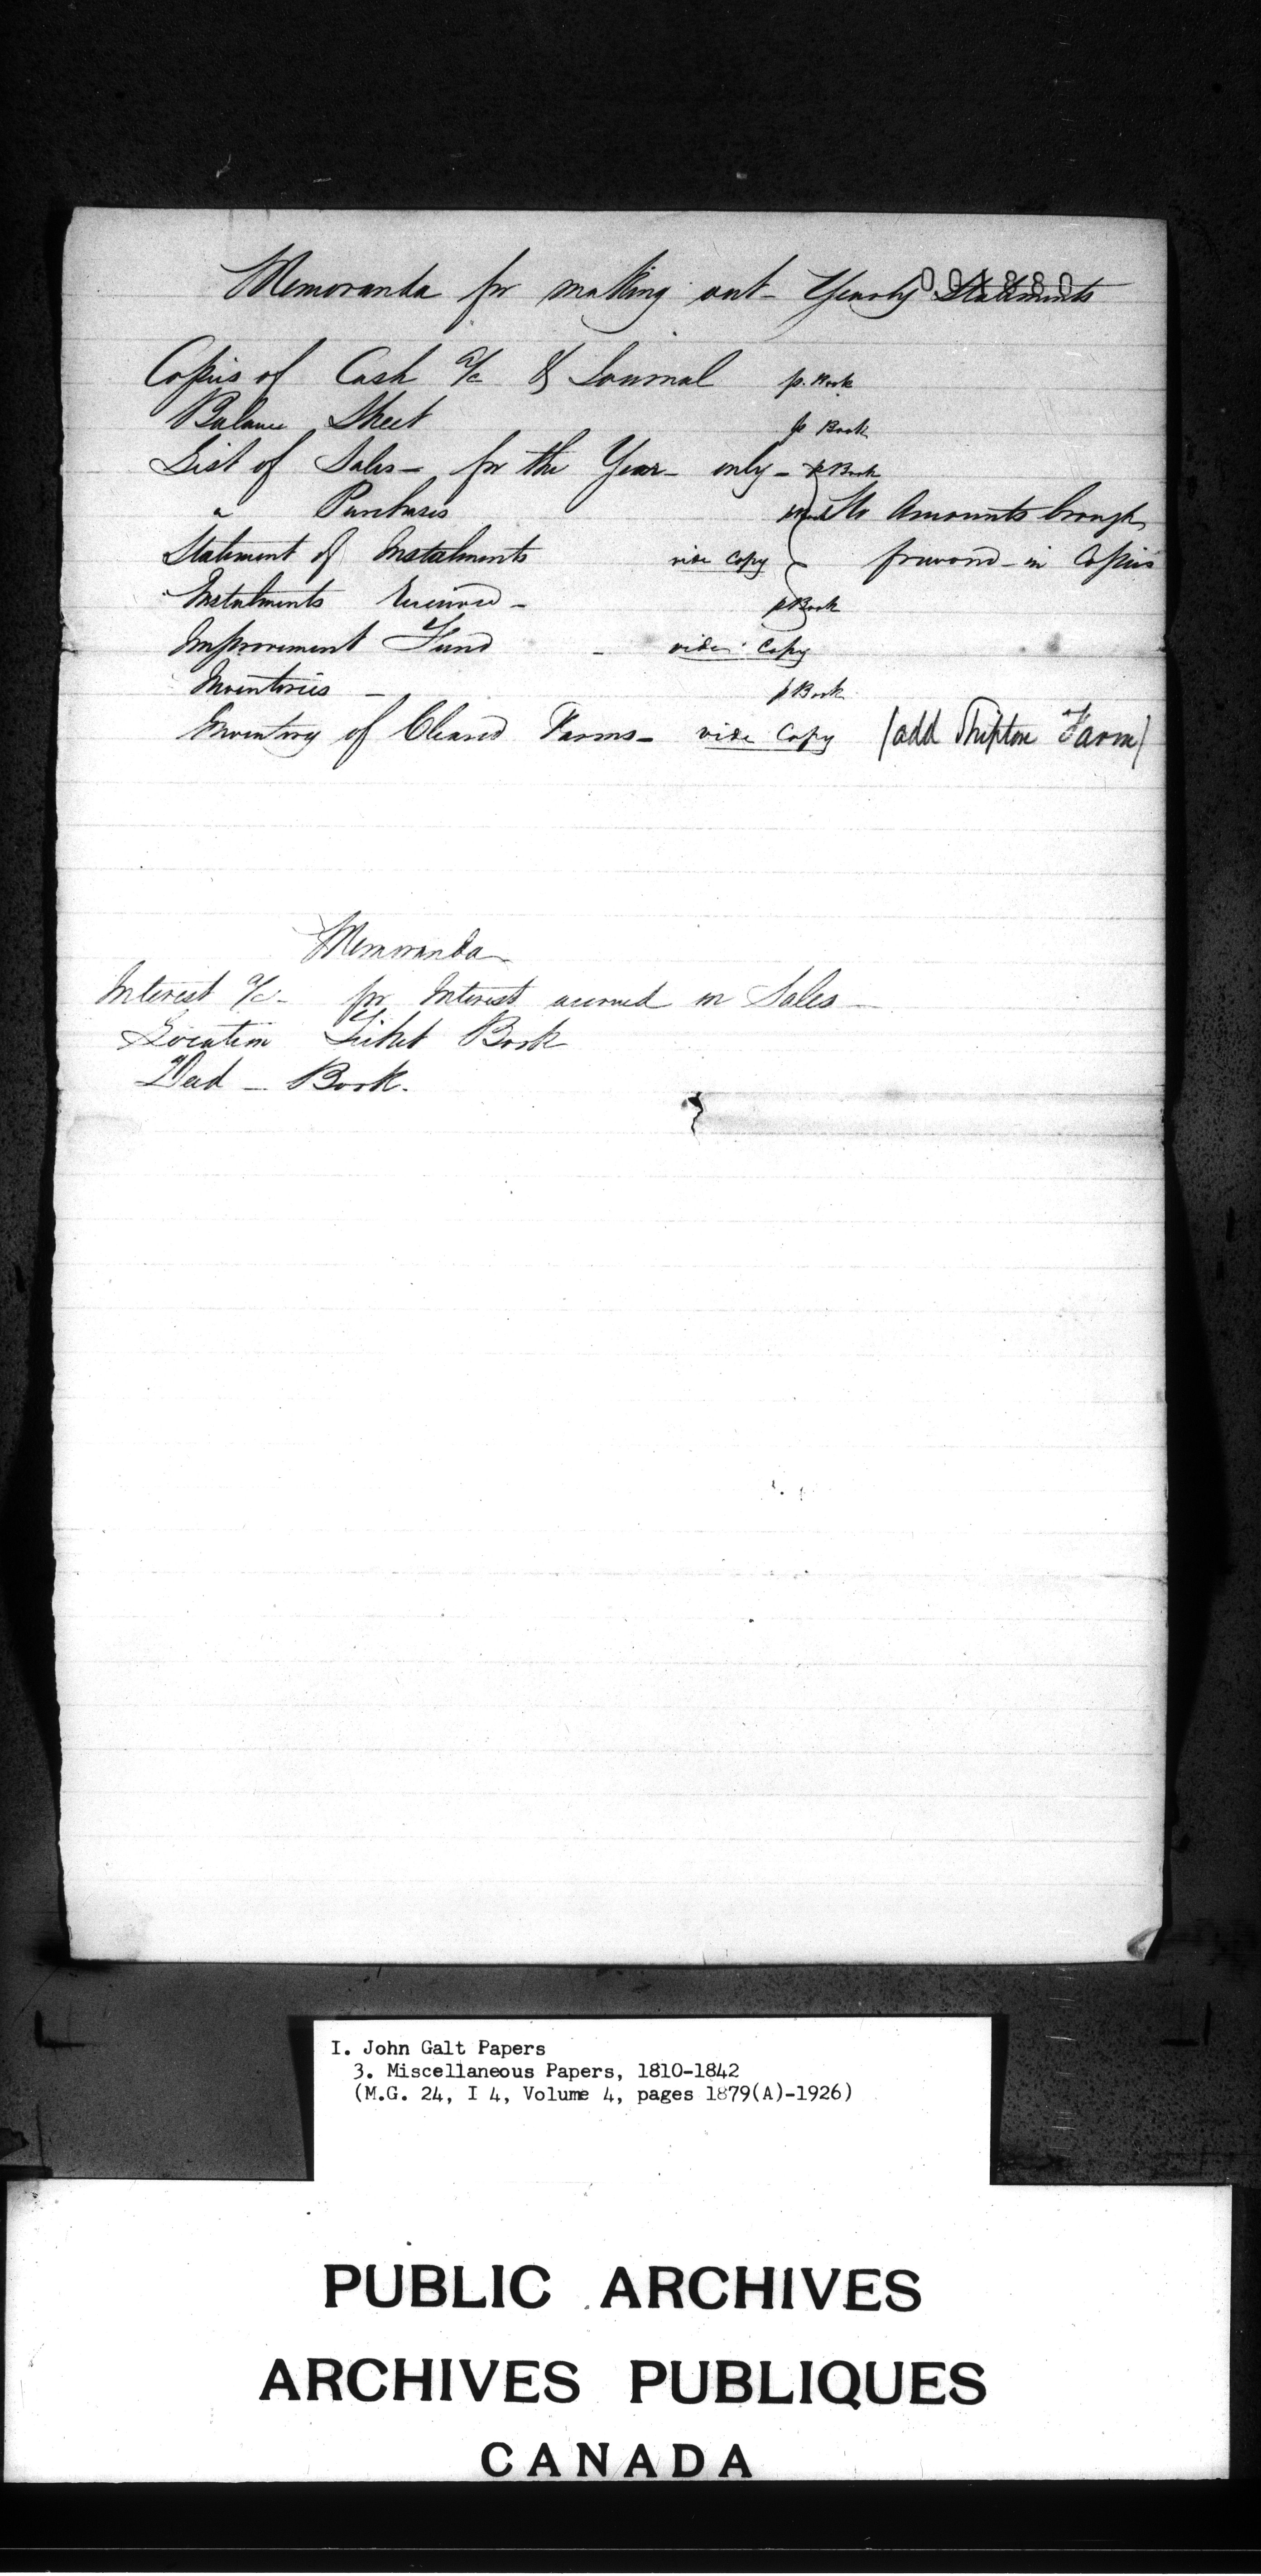 001880
Memoranda for making out - Yearly Statements
Copies of Cash a/c & Journal p. Book
Balance Sheet p Book
List of Sales - for the Year - only - p Book
" Purchases Amounts brought
Statement of Instalments vide Copy forward - in Copies
Instalments received - p Book
Improvement Fund - vide Copy
Inventories - p Book
Inventory of Cleared Farms - vide Copy (add Shipton Farm)
Memoranda
Interest a/c - for Interest accrued on Sales -
Location Ticket Book
Deed - Book.
I. John Galt Papers
3. Miscellaneous Papers, 1810-1842
(M.G. 24, I 4, Volume 4, pages 1879(A)-1926)
PUBLIC ARCHIVES
ARCHIVES PUBLIQUES
CANADA